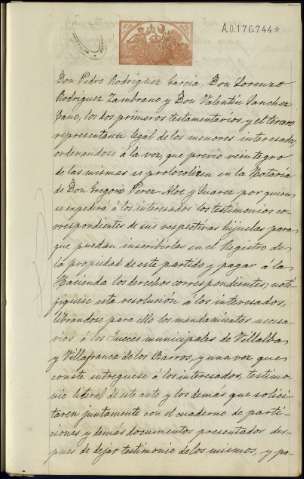 A.0.176.744*
Don Pedro Rodriguez Garcia. Don Lorenzo
Rodriguez Zambrano y Don Valentin Sanchez
Cano, los dos primeros testamentarios, y el tercero
representante legal de los menores interesados
ordenandose á la vez, que previo reintegro
de las mismas se protocolicen en la Notaria
de Don Gregorio Perez Aloe y Suarez por quien
se espedirá á los interesados los testimonios co-
rrespondientes de sus respectivas hijuelas para
que puedan inscribirlas en el Registro de
la propiedad de este partido y pagar á la
Hacienda los derechos correspondientes, noti-
fiquese esta resolucion á los interesados,
librandose para ello los mandamientos necesa-
rios á los Jueces municipales de Villalba
y Villafranca de los Barros, y una vez que
conste entreguese á los interesados, testimo-
nio literal de este auto y los demás que solici-
taren juntamente con el cuaderno de parti-
ciones y demás documentos presentados des-
pues de dejar testimonio de los mismos, y po-